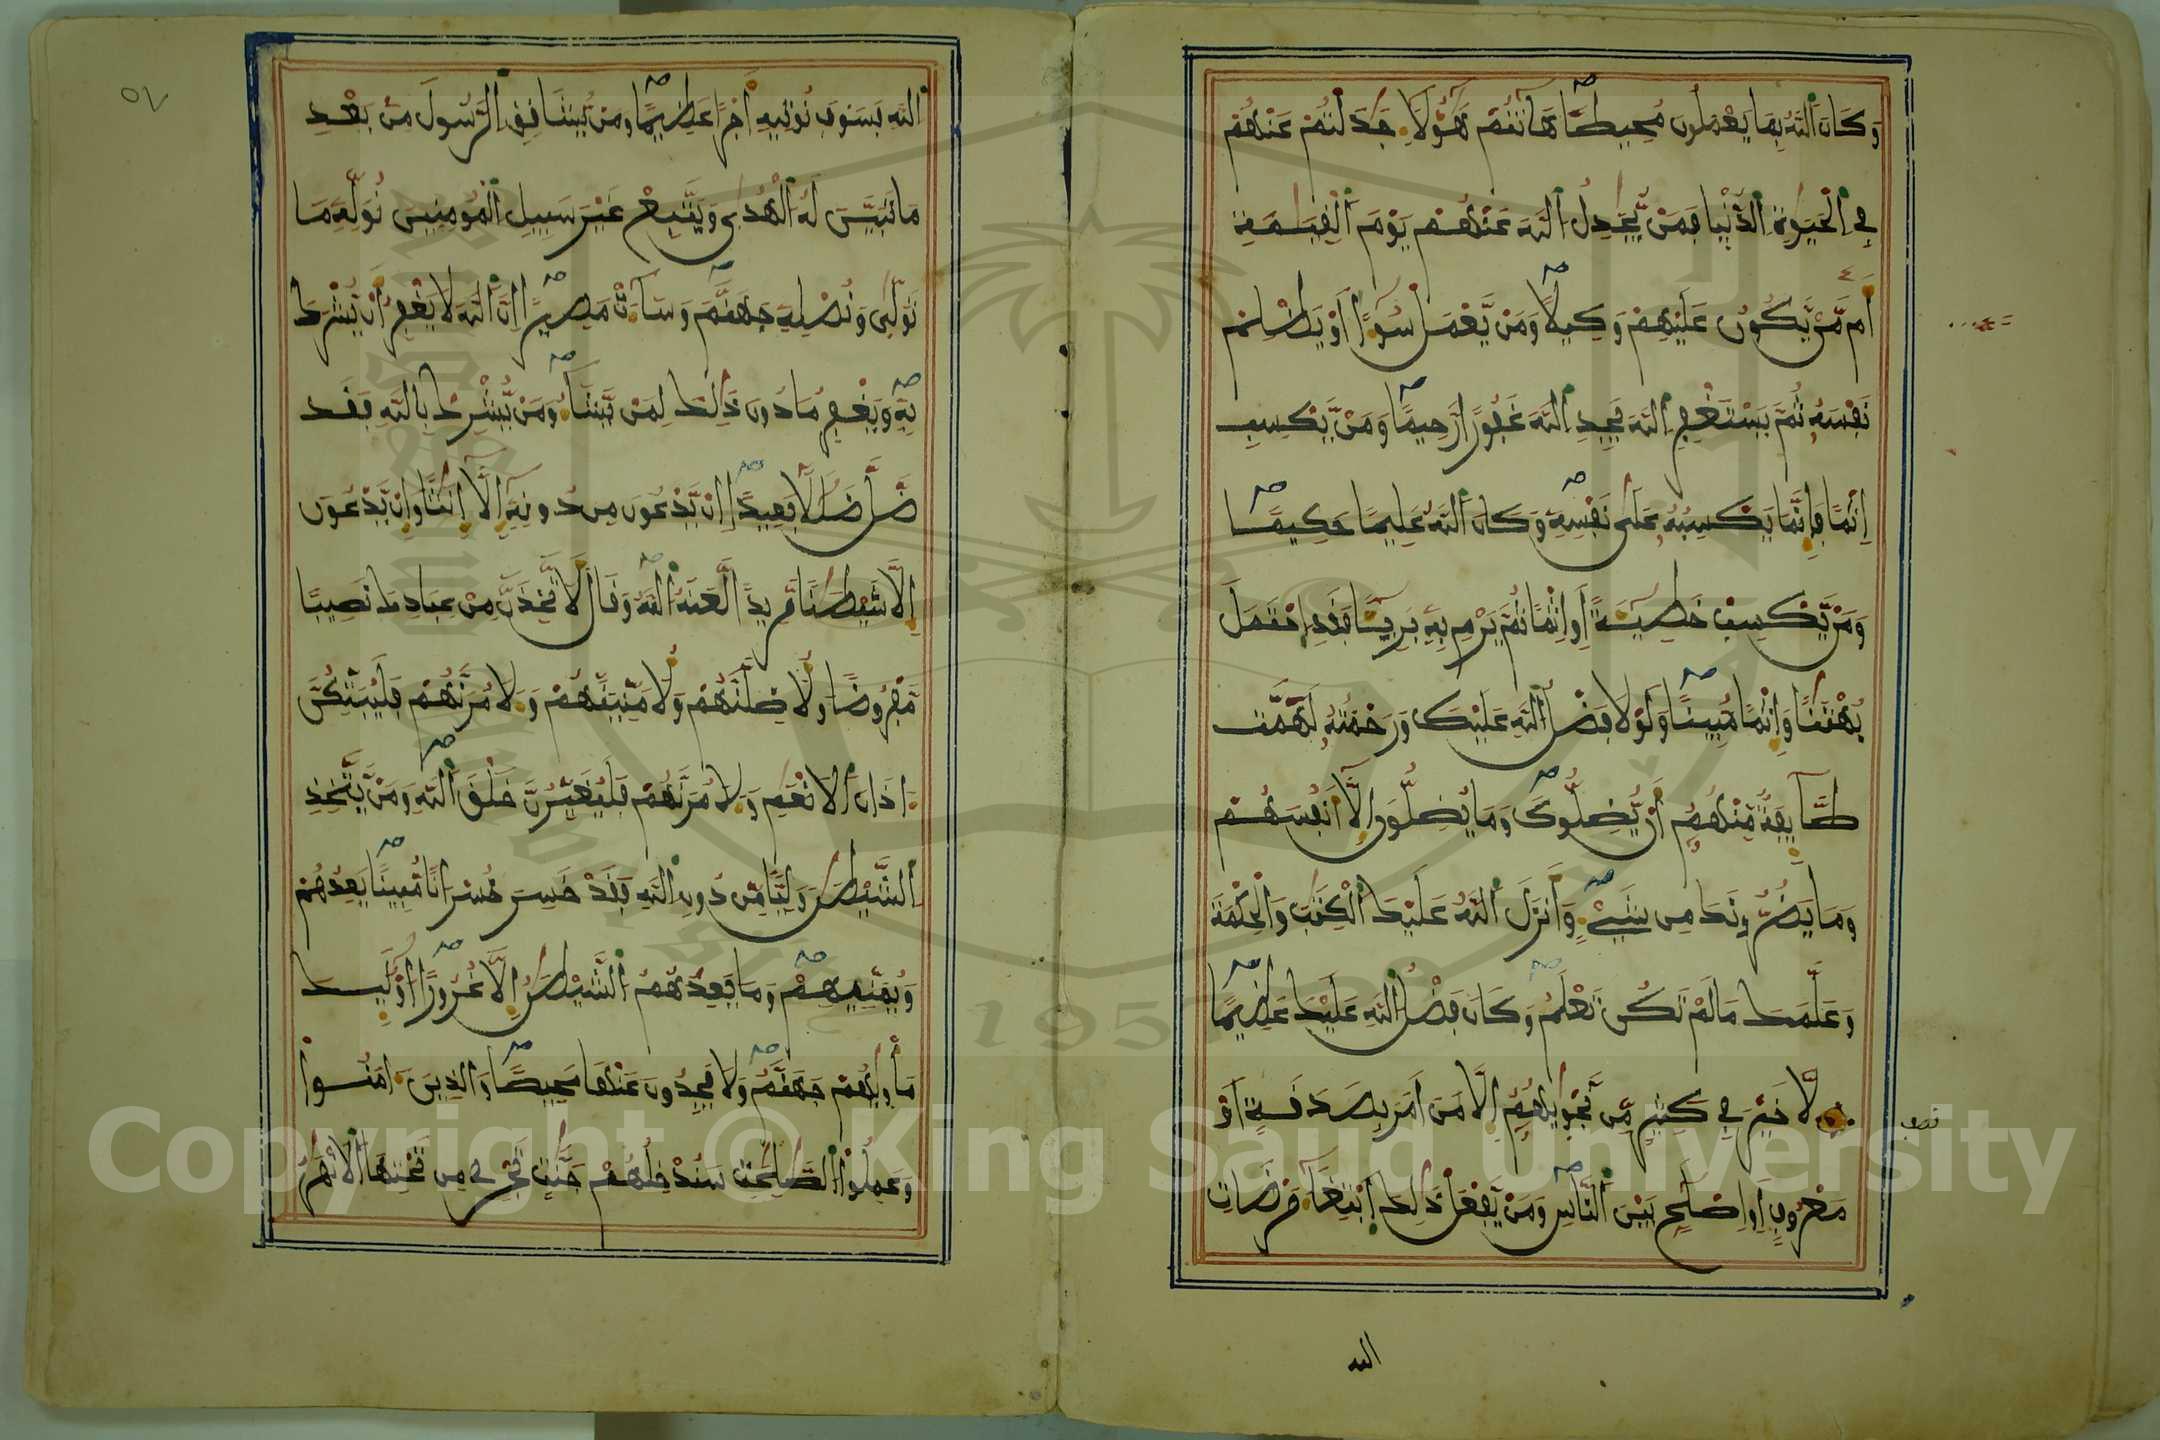 وَكَانَ اَللَّهُ بِمَا يَعْمَلُونَ مُحِيطًا هَٰٓأَنتُمْ هَٰٓؤُلَآءِ جَٰدَلْتُمْ عَنْهُمْ
فِى اِلْحَيَوٰةِ اِلدُّنْيَا فَمَنْ يُّجَٰدِلُ اُللَّهَ عَنْهُمْ يَوْمَ اَلْقِيَٰمَةِ
أَم مَّنْ يَّكُونُ عَلَيْهِمْ وَكِيلًا وَمَنْ يَّعْمَلْ سُوٓءًا اَوْ يَظْلِمْ
نَفْسَهُۥ ثُمَّ يَسْتَغْفِرِ اِللَّهَ يَجِدِ اِللَّهَ غَفُورًا رَّحِيمًا وَمَنْ يَّكْسِبِ
اِثْمًا فَإِنَّمَا يَكْسِبُهُۥ عَلَىٰ نَفْسِهِۦ وَكَانَ اَللَّهُ عَلِيمًا حَكِيمًا
وَمَنْ يَّكْسِبْ خَطِيٓـَٔةً اَوِ اِثْمًا ثُمَّ يَرْمِ بِهِۦ بَرِيٓـًٔا فَقَدِ اِحْتَمَلَ
بُهْتَٰنًا وَإِثْمًا مُّبِينًا وَلَوْلَا فَضْلُ اُللَّهِ عَلَيْكَ وَرَحْمَتُهُۥ لَهَمَّت
طَّآئِفَةٌ مِّنْهُمُۥٓ أَنْ يُّضِلُّوكَ وَمَا يُضِلُّونَ إِلَّآ أَنفُسَهُمْ
وَمَا يَضُرُّونَكَ مِن شَےْءٍ وَأَنزَلَ اَللَّهُ عَلَيْكَ اَلْكِتَٰبَ وَالْحِكْمَةَ
وَعَلَّمَكَ مَا لَمْ تَكُن تَعْلَمُ وَكَانَ فَضْلُ اُللَّهِ عَلَيْكَ عَظِيمًا
لَّا خَيْرَ فِى كَثِيرٍ مِّن نَّجْوَيٰهُمُۥٓ إِلَّا مَنَ اَمَرَ بِصَدَقَةٍ اَوْ
نصف
مَعْرُوفٍ اَوِ اِصْلَٰحٍ بَيْنَ اَلنَّاسِ وَمَنْ يَّفْعَلْ ذَٰلِكَ اَبْتِغَآءَ مَرْضَاتِ
الله
٥٧
اِللَّهِ فَسَوْفَ نُوتِيهِ أَجْرًا عَظِيمًا وَمَنْ يُّشَاقِقِ اِلرَّسُولَ مِنۢ بَعْدِ
مَا تَبَيَّنَ لَهُ اُلْهُدَىٰ وَيَتَّبِعْ غَيْرَ سَبِيلِ اِلْمُومِنِينَ نُوَلِّهِۦ مَا
تَوَلَّىٰ وَنُصْلِهِۦ جَهَنَّمَ وَسَآءَتْ مَصِيرًا اِنَّ اَللَّهَ لَا يَغْفِرُ أَنْ يُّشْرَكَ
بِهِۦ وَيَغْفِرُ مَا دُونَ ذَٰلِكَ لِمَنْ يَّشَآءُ وَمَنْ يُّشْرِكْ بِاللَّهِ فَقَد
ضَّلَّ ضَلَٰلًا بَعِيدًا اِنْ يَّدْعُونَ مِن دُونِهِۦٓ إِلَّآ إِنَٰثًا وَإِنْ يَّدْعُونَ
إِلَّا شَيْطَٰنًا مَّرِيدًا لَّعَنَهُ اُللَّهُ وَقَالَ لَأَتَّخِذَنَّ مِنْ عِبَادِكَ نَصِيبًا
مَّفْرُوضًا وَلَأُضِلَّنَّهُمْ وَلَأُمَنِّيَنَّهُمْ وَءَلَامُرَنَّهُمْ فَلَيُبَتِّكُنَّ
ءَاذَانَ اَلْأَنْعَٰمِ وَءَلَامُرَنَّهُمْ فَلَيُغَيِّرُنَّ خَلْقَ اَللَّهِ وَمَنْ يَّتَّخِذِ
اِلشَّيْطَٰنَ وَلِيًّا مِّن دُونِ اِللَّهِ فَقَدْ خَسِرَ خُسْرَانًا مُّبِينًا يَعِدُهُمْ
وَيُمَنِّيهِمْ وَمَا يَعِدُهُمُ اُلشَّيْطَٰنُ إِلَّا غُرُورًا اُوْلَٰٓئِكَ
مَأْوَيٰهُمْ جَهَنَّمُ وَلَا يَجِدُونَ عَنْهَا مَحِيصًا وَالَّذِينَ ءَامَنُوا
وَعَمِلُوا اُلصَّٰلِحَٰتِ سَنُدْخِلُهُمْ جَنَّٰتٍ تَجْرِى مِن تَحْتِهَا اَلْأَنْهَٰرُ
1957
Copyright © King Saud University